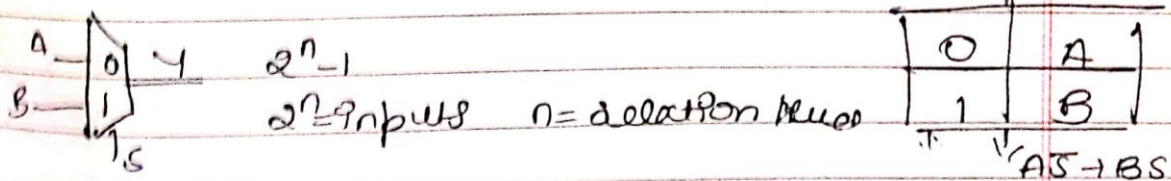 A 0 Y 2ⁿ-1 0 A
B 1 2ⁿ=inputs n= selection lines 1 B
S AS̅ + BS